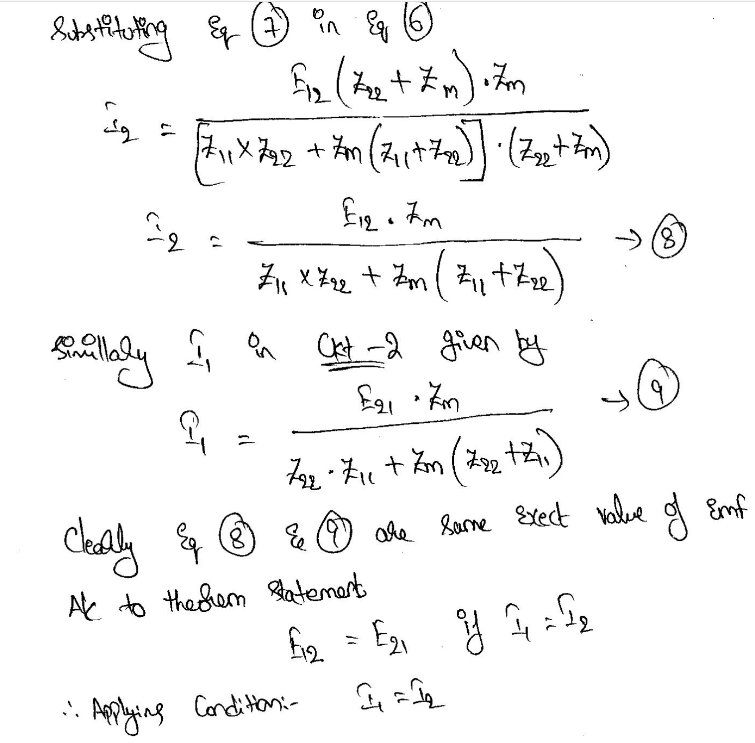 Substituting Eq (7) in Eq (6)
I2 = E12 (Z22 + Zm) . Zm / [Z11 x Z22 + Zm (Z11 + Z22)] . (Z22 + Zm)
I2 = E12 . Zm / Z11 x Z22 + Zm (Z11 + Z22) → (8)
Simillaly I1 in Ckt -2 given by
I1 = E21 . Zm / Z22 . Z11 + Zm (Z22 + Z11) → (9)
Clearly Eq (8) & (9) are same exect value of Emf
Ac to theorem statement
E12 = E21 if I1 = I2
∴ Applying Condition:- I1 = I2